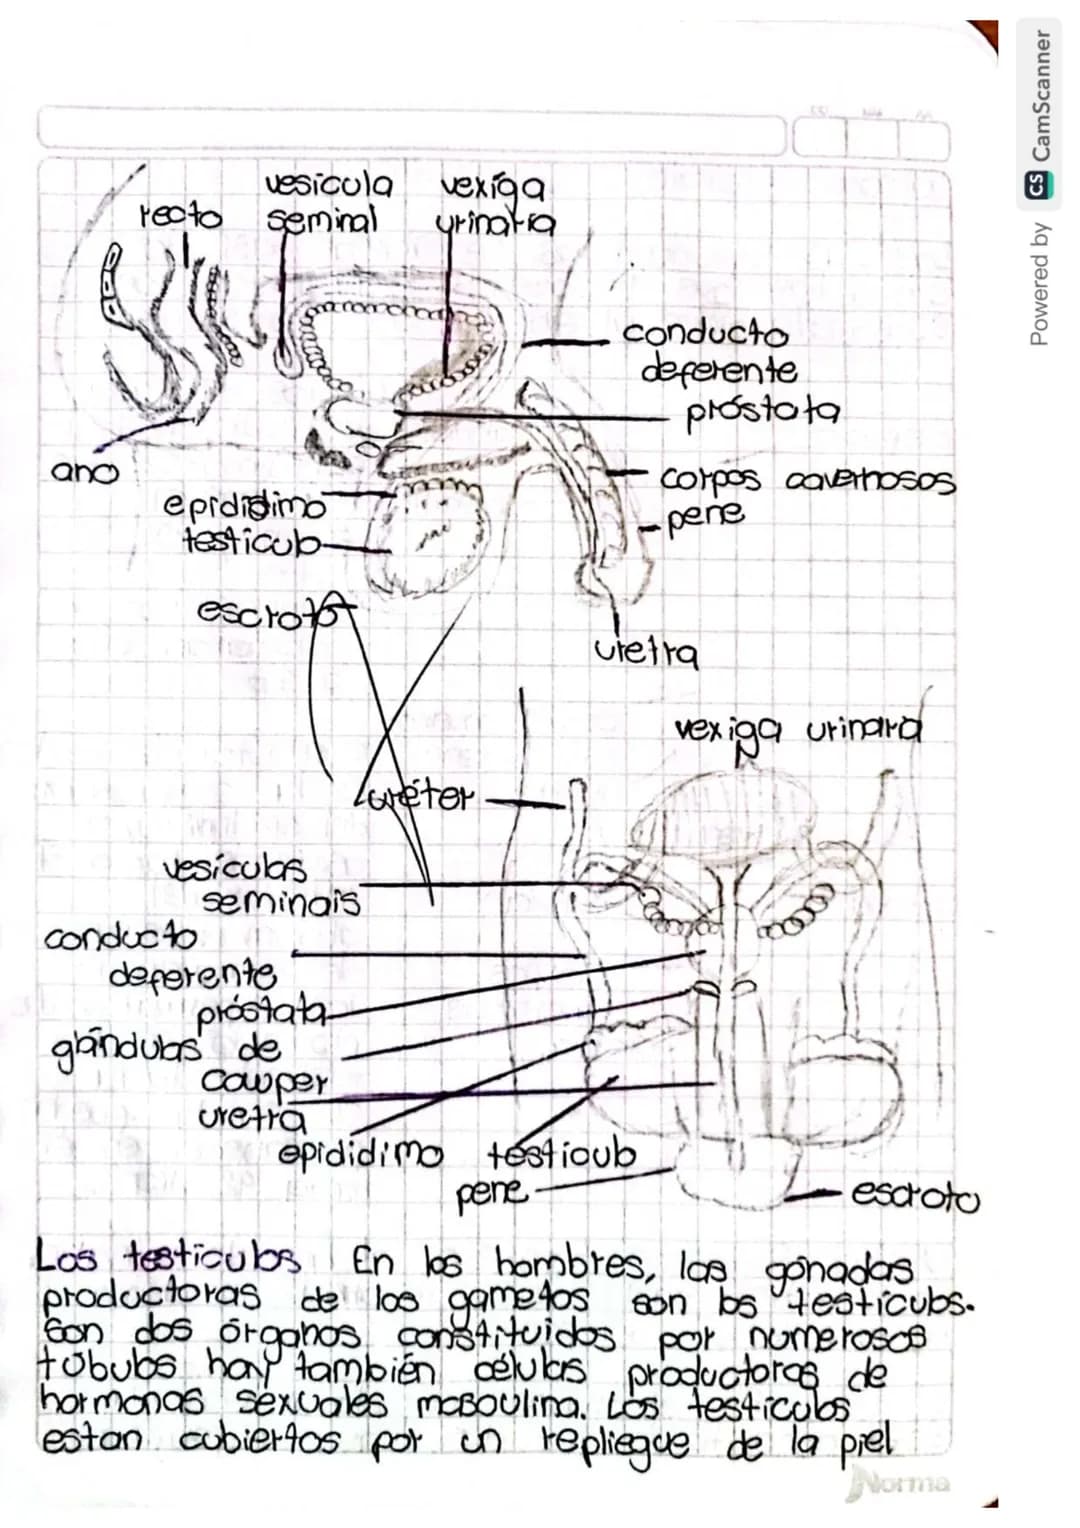 recto
vesicula
seminal
vexiga
urinaria
conducto
deferente
próstata
ano
corpos cavernosos
pene
epididimo
testiculo
escroto
uretra
vexiga urinara
uréter
vesiculas
seminais
conducto
deferente
próstata
glándulas de
cowper
uretra
epididimo
testiculo
pene
escroto
Los testiculos En los hombres, las gónadas
productoras de los gametos son los testiculos.
Son dos órganos constituidos por numerosos
túbulos hay también células productoras de
hormonas sexuales masculina. Los testiculos
estan cubiertos por un repliegue de la piel
Norma
Powered by CS CamScanner